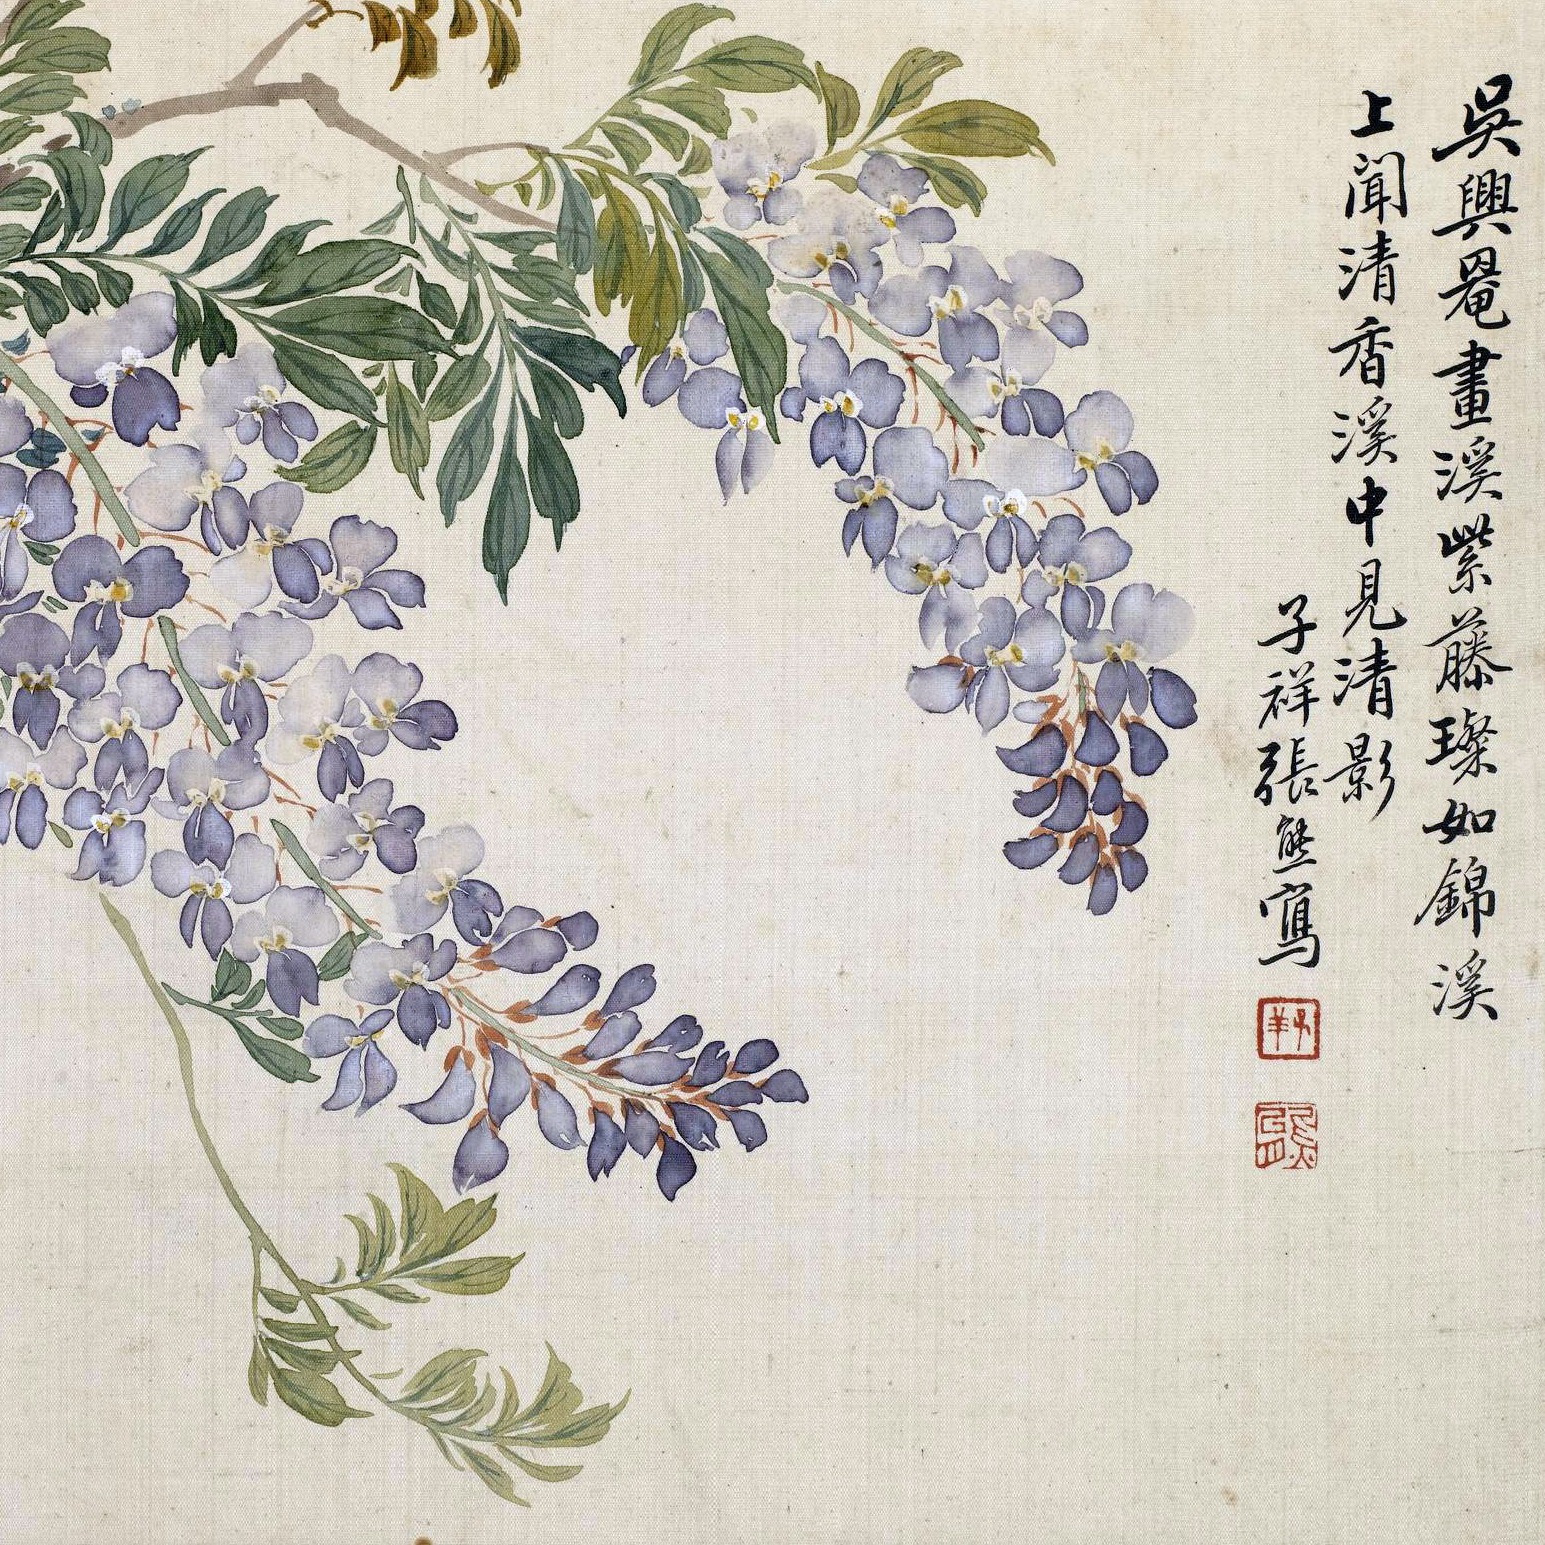 吳興罨畫溪紫藤璨如錦溪
上聞清香溪中見清影
子祥張熊寫
子羊